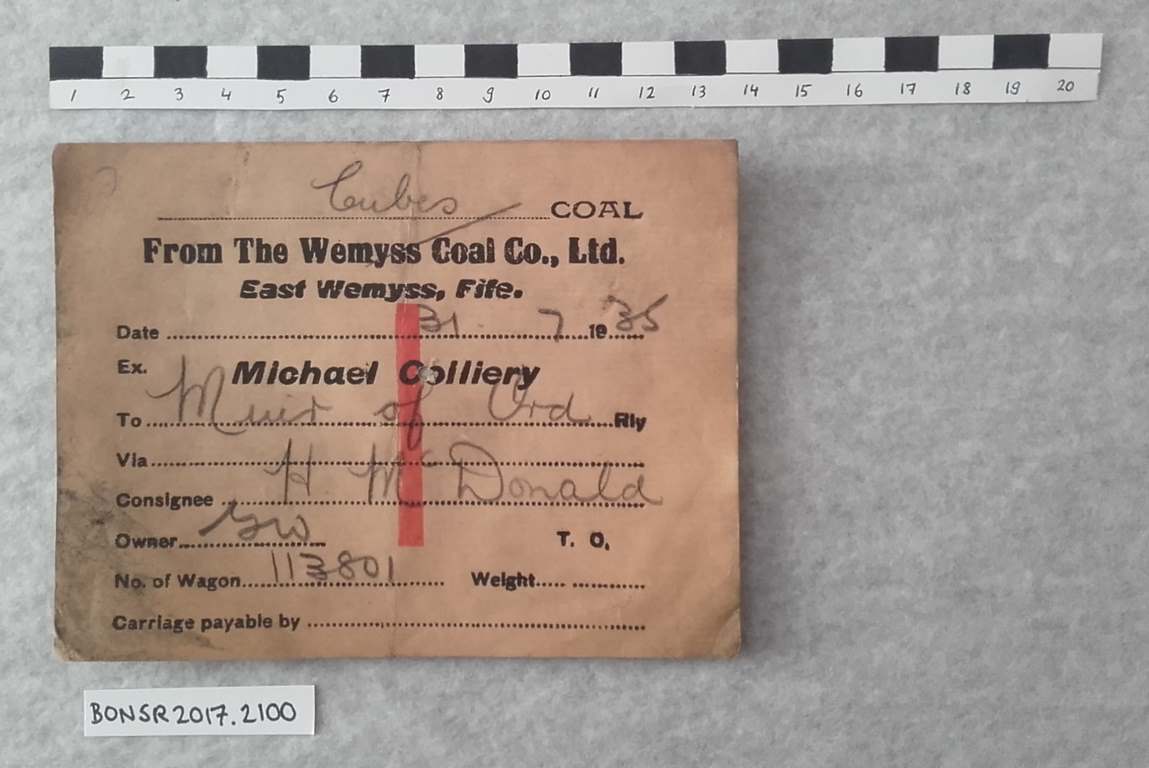 1 2 3 4 5 6 7 8 9 10 11 12 13 14 15 16 17 18 19 20
Cubes COAL
From The Wemyss Coal Co., Ltd.
East Wemyss, Fife.
Date 31. 7 1935
Ex. Michael Colliery
To Muir of Ord Rly
Via
Consignee H. McDonald
Owner GW T. O.
No. of Wagon 113801 Weight
Carriage payable by
BONSR2017.2100